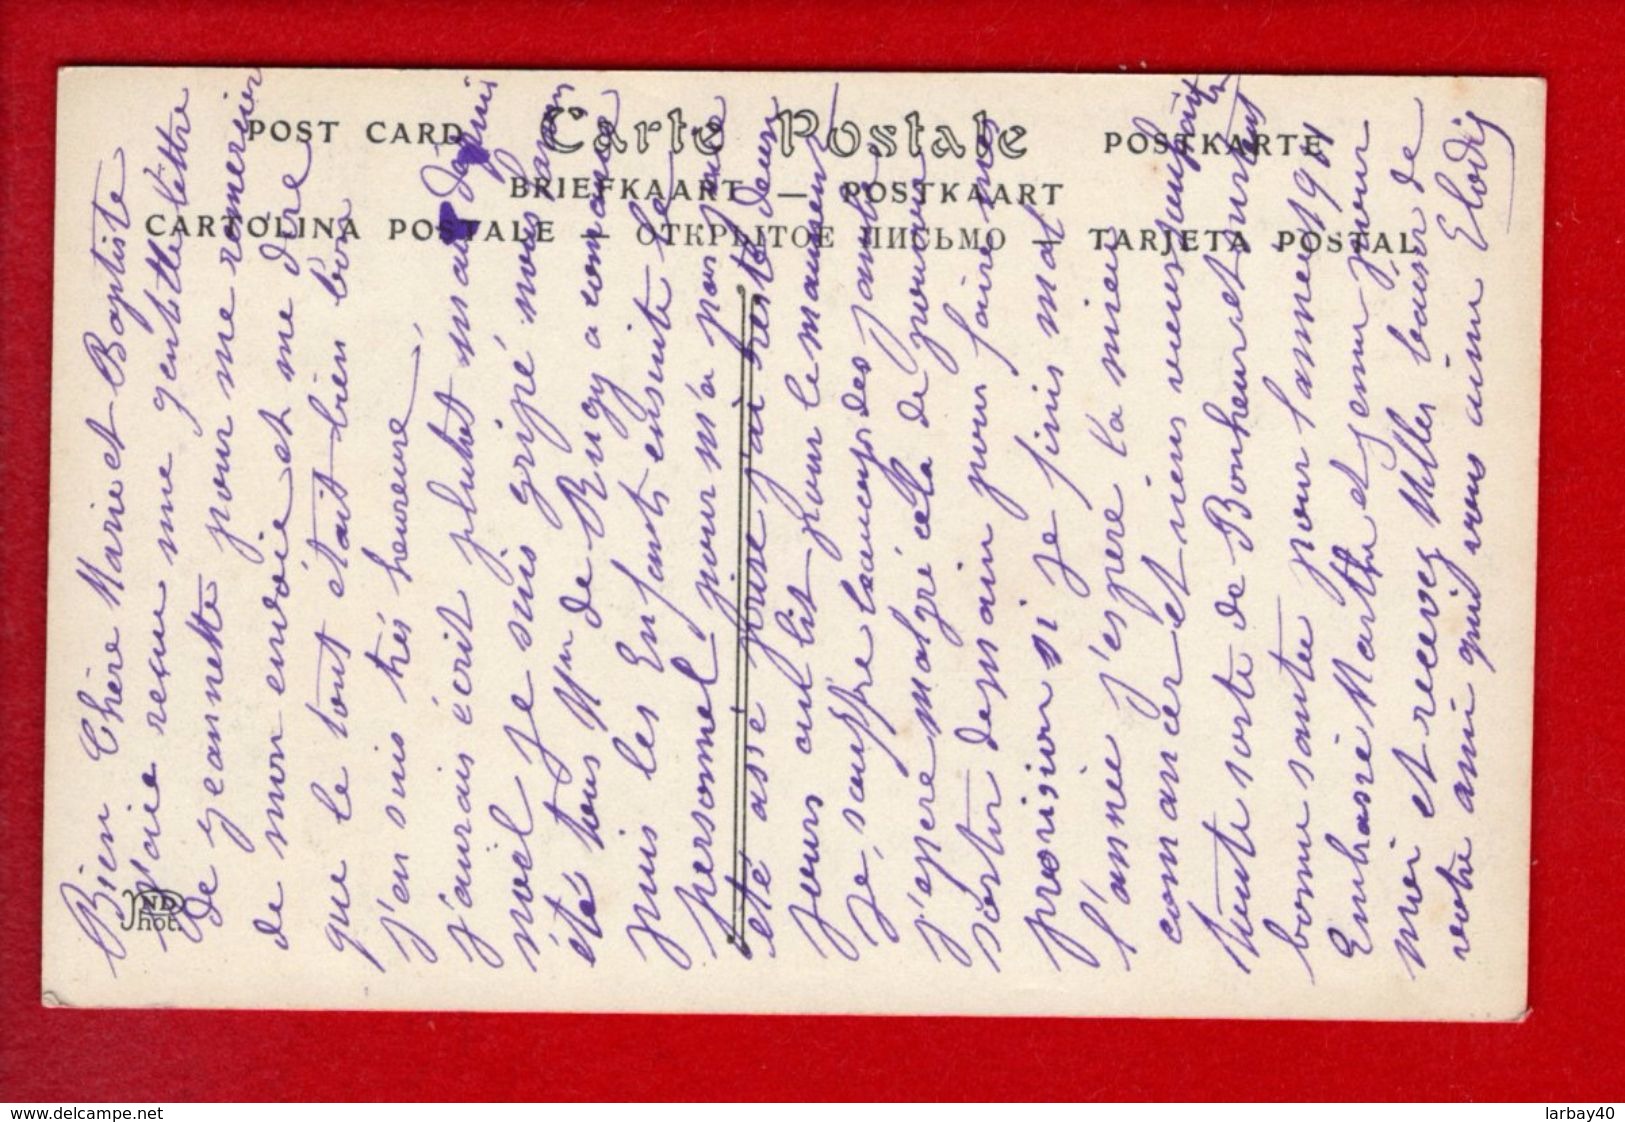 POST CARD Carte Postale POSTKARTE
BRIEFKAART — POSTKAART
CARTOLINA POSTALE — ОТКРЫТОЕ ПИСЬМО — TARJETA POSTAL
ND
Phot.
Bien Chère Marie et Baptiste
j'aie resue une gentille lettre
de Jeannette pour me remercier
de mon envoie et me dire
que le tout était bien bon
j'en suis trés heureuse,
j'aurais écrit plutot mais depuis
noel je suis gripé nous avons
été tous Mm de Rugy a comancé
puis les Enfants ensuite le
personnel, pour m'a pour
eté assé prise j'ai resté deux
jours au lit pour le moment
je, souffre beaucoup des jambe
j'espere malgré cela de pouvoir
sortir demain pour faire mes
provision si je finis mal
l'année j'espere la mieux
comancer et viens vous souhaiter
toute sorte de Bonheur et surtout
bonne santée pour l'année 1914
Embrassé Marthe et Jenny pour
moi et recevez Milles baisir de
votre ami qui vous aime Elodie
www.delcampe.net
larbay40